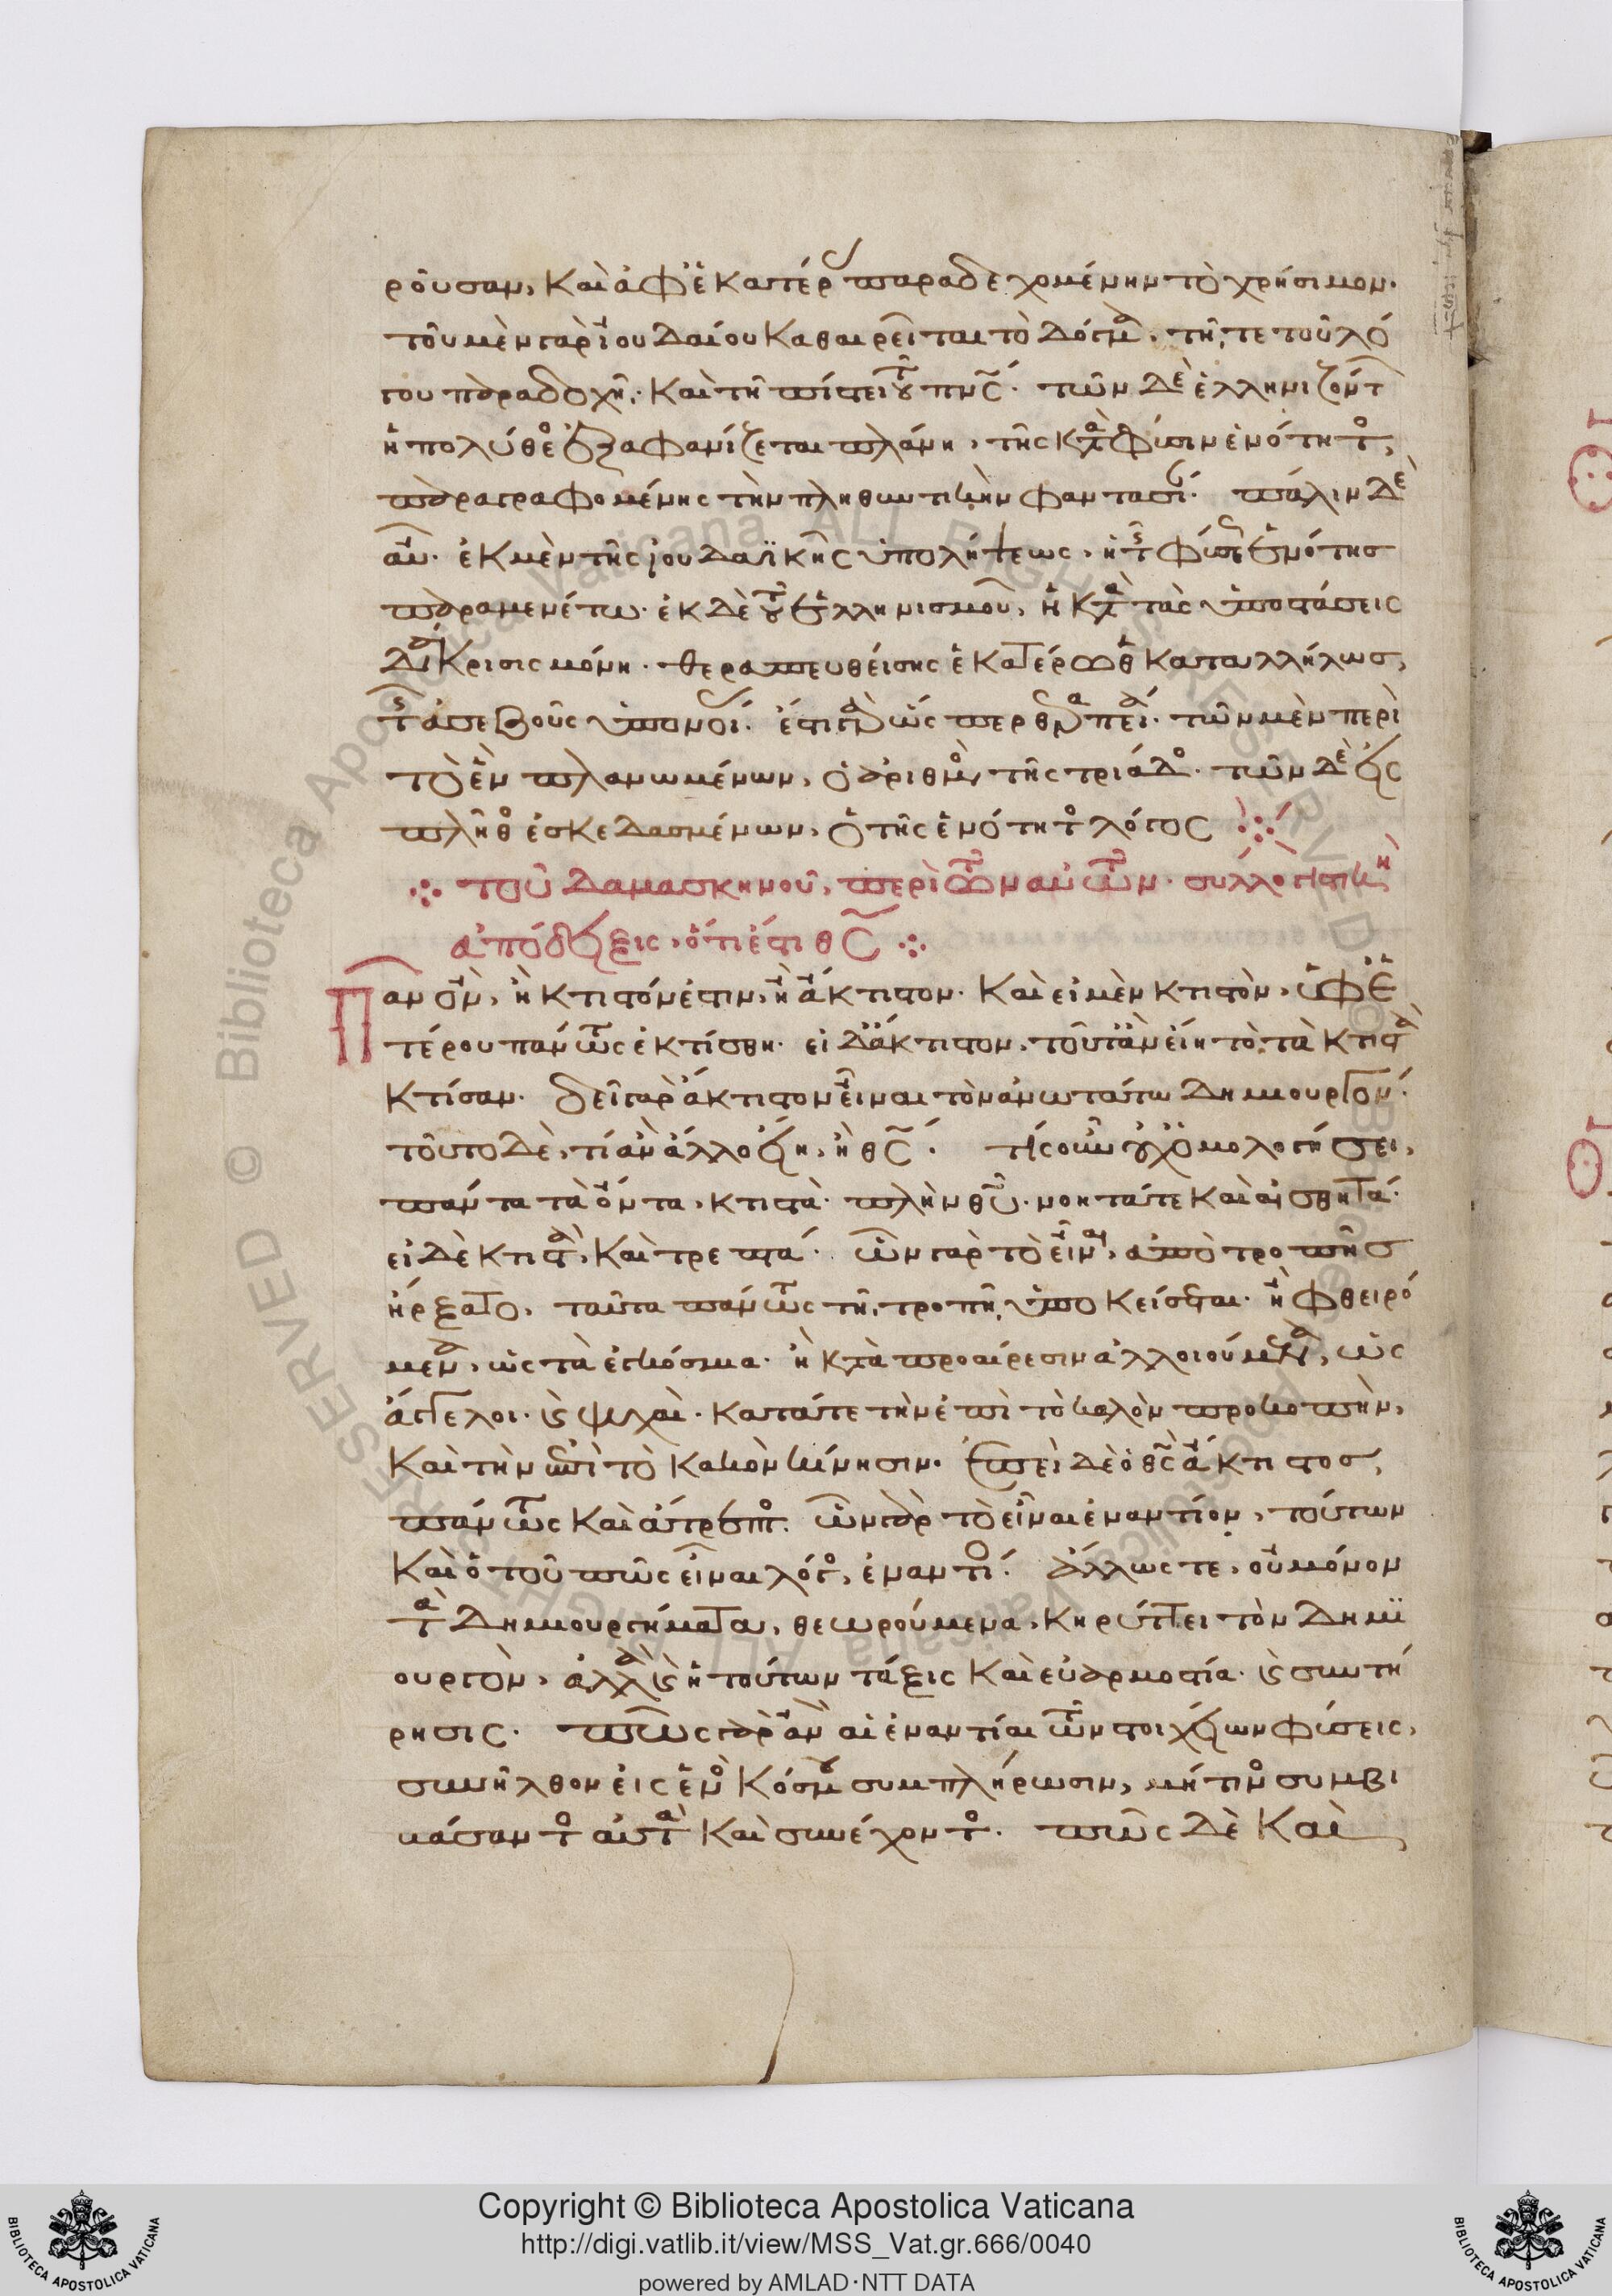 ροῦσαν, καὶ ἀφ' ἑκατέρου παραδεχομένην τὸ χρήσιμον.
τοῦ μὲν γὰρ ἰουδαίου καθαιρεῖται τὸ δόγμα, τῆ τε τοῦ λό
γου παραδοχῆ· καὶ τῆ πίστει τοῦ πνς. τῶν δὲ ἑλληνιζόντων
ἡ πολύθεος ἐξαφανίζεται πλάνη, τῆς κατὰ φύσιν ἑνότητος,
παραγραφομένης τὴν πληθυντικὴν φαντασίαν. πάλιν δὲ
αὖ. ἐκ μὲν τῆς ἰουδαϊκῆς ὑπολήψεως, ἡ τῆς φύσεως ἑνότης
παραμενέτω· ἐκ δὲ τοῦ ἑλληνισμοῦ, ἡ κατὰ τὰς ὑποστάσεις
διάκρισις μόνη. θεραπευθείσης ἑκατέρωθεν καταλλήλως,
τῆς ἀσεβοῦς ὑπονοίας. ἔστι γὰρ ὥσπερ θεραπεία. τῶν μὲν περὶ
τὸ ἓν πλανωμένων, ὁ ἀριθμὸς τῆς τριάδος. τῶν δὲ εἰς
πλῆθος ἐσκεδασμένων, ὁ τῆς ἑνότητος λόγος
τοῦ δαμασκηνοῦ, περὶ τῶν αὐτῶν. συλλογιστικὴ
ἀπόδειξις, ὅτι ἔστι θς
Παν ὂν, ἢ κτιστόν ἐστιν, ἢ ἄκτιστον. καὶ εἰ μὲν κτιστὸν, ὑφ' ἑ
τέρου πάντως ἐκτίσθη. εἰ δ' ἄκτιστον, τοῦτ' ἂν εἴη τὸ τὰ κτιστὰ
κτίσαν. δεῖ γὰρ ἄκτιστον εἶναι τὸν ἀνωτάτω δημιουργόν.
τοῦτο δὲ, τί ἂν ἄλλο εἴη, ἢ θς. τίς οὖν οὐχ ὁμολογήσει,
πάντα τὰ ὄντα, κτιστὰ. πλὴν θυ. νοητά τε καὶ αἰσθητά.
εἰ δὲ κτιστὰ, καὶ τρεπτά. ὧν γὰρ τὸ εἶναι, ἀπὸ τροπῆς
ἤρξατο, ταῦτα πάντως τῆ τροπῆ ὑποκείσεται. ἢ φθειρό
μενα, ὡς τὰ ἐγκόσμια. ἢ κατὰ προαίρεσιν ἀλλοιούμενα, ὡς
ἄγγελοι. καὶ ψυχαὶ. κατά τε τὴν ἐπὶ τὸ καλὸν προκοπὴν,
καὶ τὴν ἐπὶ τὸ κακὸν κίνησιν. ἐπεὶ δὲ ὁ θς ἄκτιστος,
πάντως καὶ ἄτρεπτος. ὧν γὰρ τὸ εἶναι ἐναντίον, τούτων
καὶ ὁ τοῦ πῶς εἶναι λόγος, ἐναντίος. ἄλλως τε, οὐ μόνον
τὰ δημιουργήματα, θεωρούμενα, κηρύττει τὸν δημι
ουργὸν, ἀλλὰ καὶ ἡ τούτων τάξις καὶ εὐαρμοστία. καὶ συντή
ρησις. πῶς γὰρ ἂν αἱ ἐναντίαι τῶν στοιχείων φύσεις,
συνῆλθον εἰς ἑνὸς κόσμου συμπλήρωσιν, μή τινος συμβι
βάσαντος αὐτὰ καὶ συνέχοντος. πῶς δὲ καὶ
Copyright © Biblioteca Apostolica Vaticana
http://digi.vatlib.it/view/MSS_Vat.gr.666/0040
powered by AMLAD·NTT DATA
BIBLIOTECA APOSTOLICA VATICANA
BIBLIOTECA APOSTOLICA VATICANA